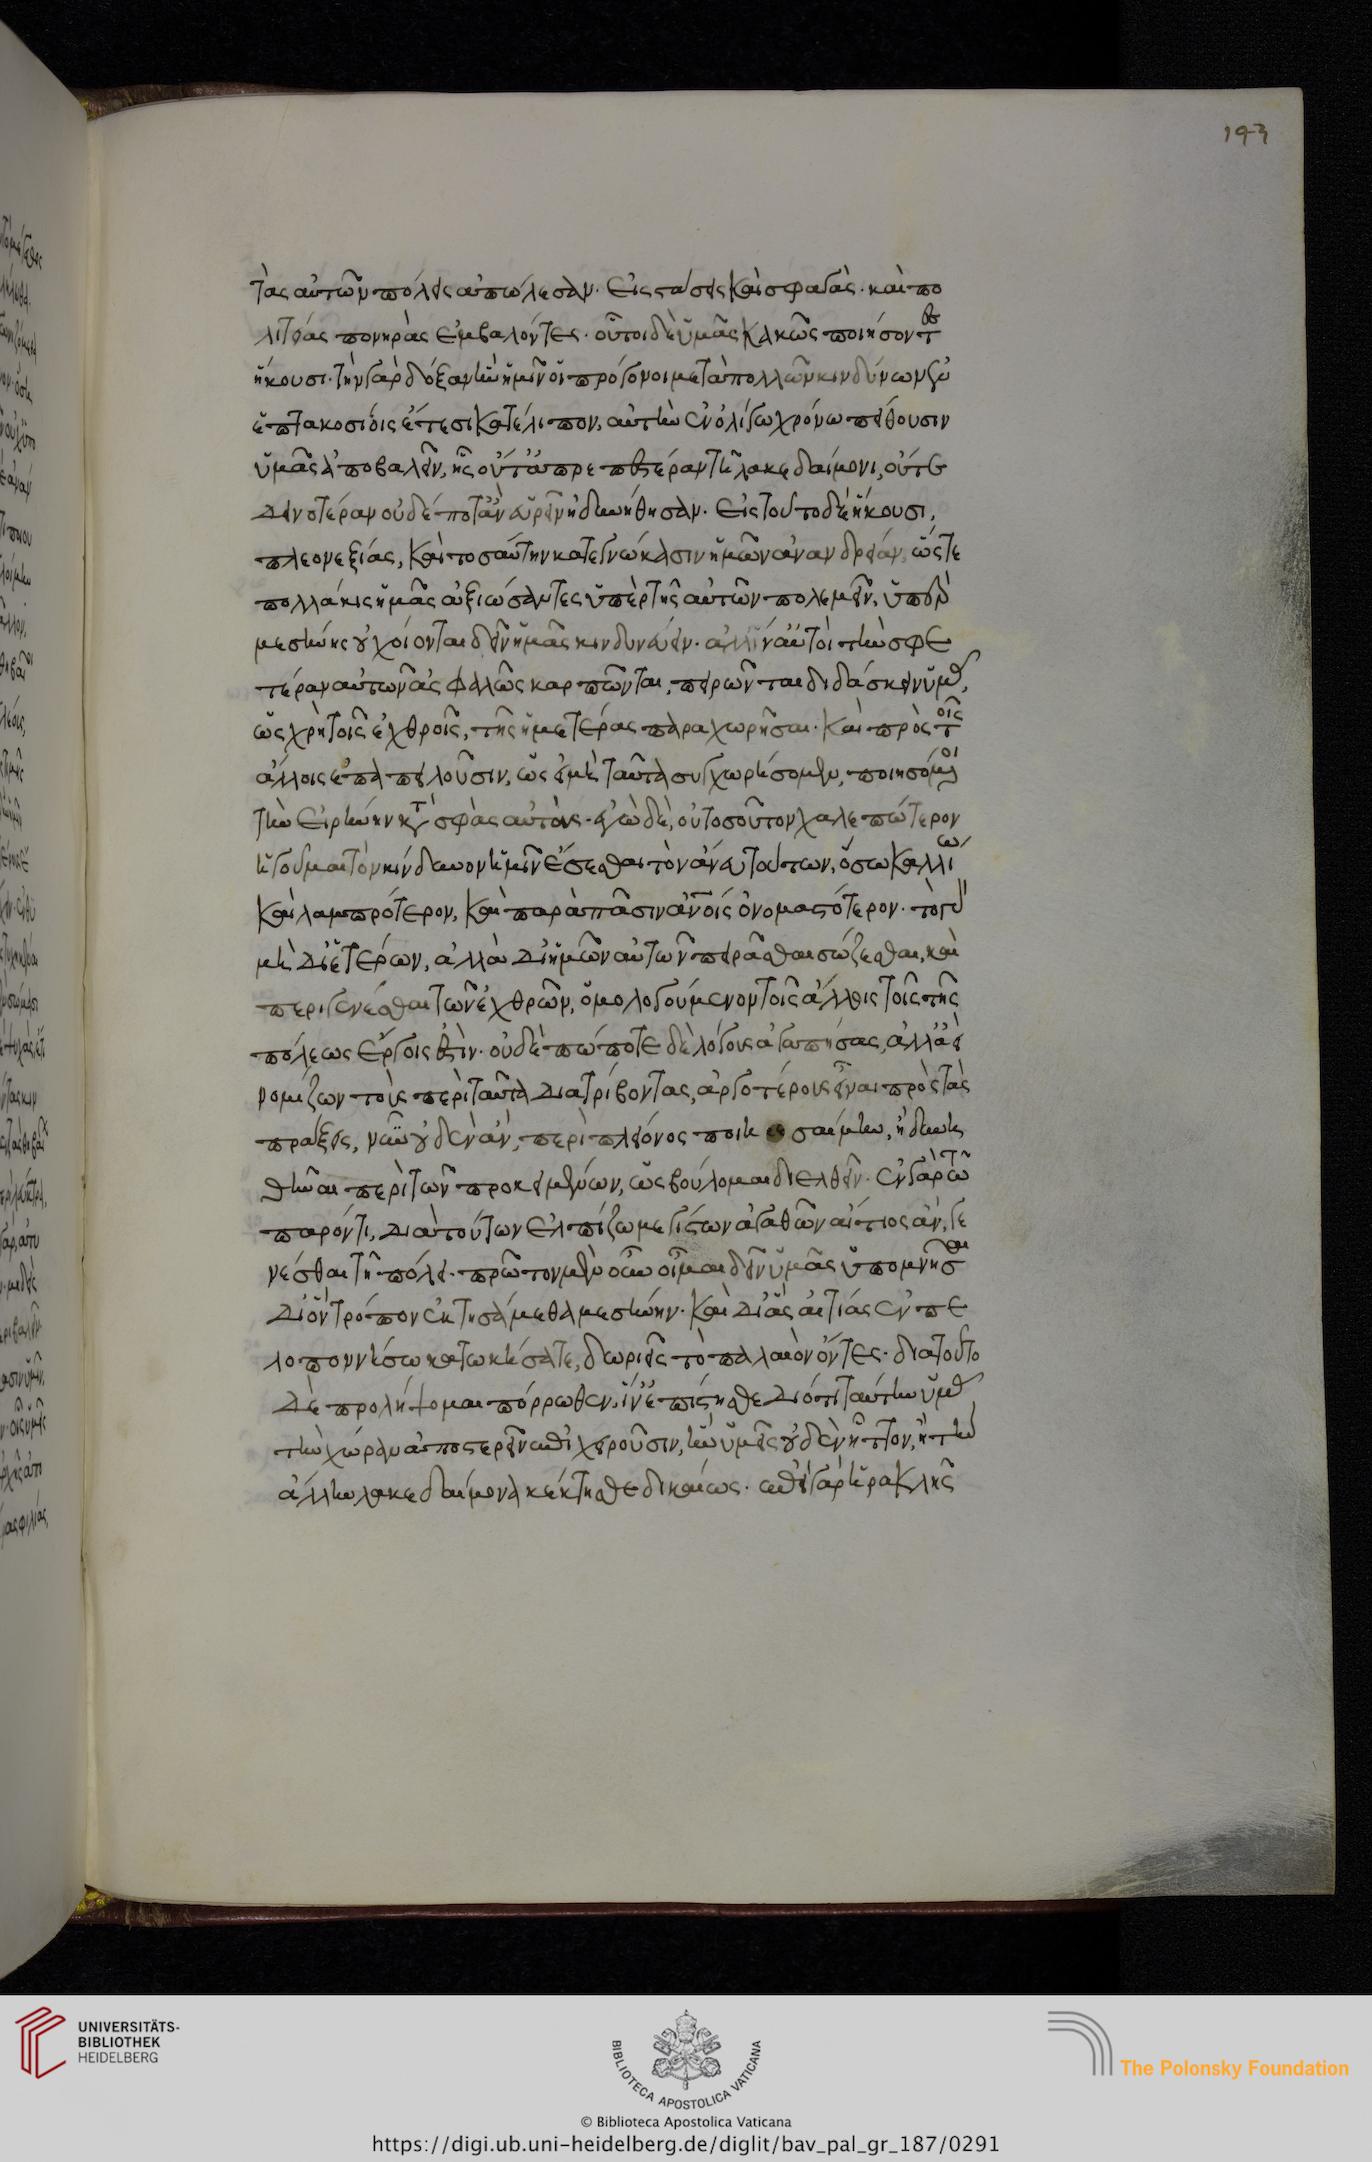 193
τὰς αὐτῶν πόλεις ἀπώλεσαν· εἰς στάσεις καὶ σφαγὰς· καὶ πο
λιτείας πονηρὰς ἐμβαλόντες· οὗτοι δὲ ὑμᾶς κακῶς ποιήσοντες
ἥκουσι· τὴν γὰρ δόξαν ἣν ἡμῖν οἱ πρόγονοι μετὰ πολλῶν κινδύνων ἐν
ἑπτακοσίοις ἔτεσι κατέλιπον, αὐτὴν ἐν ὀλίγω χρόνω πείθουσιν
ὑμᾶς ἀποβαλεῖν, ἧς οὔτ' ἀπρεπεστέραν τῆ λακεδαίμονι, οὔτε
δεινοτέραν οὐδέποτ' ἂν εὑρεῖν ἠδυνήθησαν. εἰς τοῦτο δὲ ἥκουσι,
πλεονεξίας, καὶ τοσαύτην κατεγνώκασιν ἡμῶν ἀνανδρείαν, ὥστε
πολλάκις ἡμᾶς ἀξιώσαντες ὑπὲρ τῆς αὐτῶν πολεμεῖν, ὑπὲρ
μεσήνης οὐχ οἴονται δεῖν ἡμᾶς κινδυνεύειν· ἀλλ' ἵν' αὐτοὶ τὴν σφε
τέραν αὐτῶν ἀσφαλῶς καρπῶνται, πειρῶνται διδάσκειν ὑμᾶς,
ὡς χρὴ τοῖς ἐχθροῖς, τῆς ἡμετέρας παραχωρῆσαι· καὶ πρὸς τοῖς
ἄλλοις ἐπαπειλοῦσιν, ὡς εἰ μὴ ταῦτα συγχωρήσομεν, ποιησόμενοι
τὴν εἰρήνην κατὰ σφᾶς αὐτούς· ἐγὼ δὲ, οὐ τοσοῦτον χαλεπώτερον
ἡγοῦμαι τὸν κίνδυνον ἡμῖν ἔσεσθαι τὸν ἄνευ τούτων, ὅσω καλλίω
καὶ λαμπρότερον, καὶ παρὰ πᾶσιν ἀνοις ὀνομαστότερον· τὸ γὰρ
μὴ δι' ἑτέρων, ἀλλὰ δι' ἡμῶν αὐτῶν πειρᾶσθαι σώζεσθαι, καὶ
περιγενέσθαι τῶν ἐχθρῶν, ὁμολογούμενον τοῖς ἄλλοις τοῖς τῆς
πόλεως ἔργοις ἐστίν· οὐδὲ πώποτε δὲ λόγους ἀγαπήσας, ἀλλ' ἀεὶ
νομίζων τοὺς περὶ ταῦτα διατρίβοντας, ἀργοτέρους εἶναι πρὸς τὰς
πράξεις, νῦν οὐδὲν ἂν, περὶ πλείονος ποιησαίμην, ἢ δυνη
θῆναι περὶ τῶν προκειμένων, ὡς βούλομαι διελθεῖν· ἐν γὰρ τῶ
παρόντι, διὰ τούτων ἐλπίζω μεγίστων ἀγαθῶν αἴτιος ἂν, γε
νέσθαι τῆ πόλει· πρῶτον μὲν οὖν οἶμαι δεῖν ὑμᾶς ὑπομνησθῆναι
δι' ὃν τρόπον ἐκτησάμεθα μεσήνην· καὶ δι' ἃς αἰτίας ἐν πε
λοποννήσω κατωκήσατε, δωριεῖς τὸ παλαιὸν ὄντες· διὰ τοῦτο
δὲ προλήψομαι πόρρωθεν, ἵν' ἐπίστησθε διότι ταύτην ὑμᾶς
τὴν χώραν ἀποστερεῖν ἐπιχειροῦσιν, ἣν ὑμεῖς οὐδὲν ἧττον, ἢ τὴν
ἄλλην λακεδαίμονα κέκτησθε δικαίως. ἐπεὶ γὰρ ἡρακλῆς
UNIVERSITÄTS-
BIBLIOTHEK
HEIDELBERG
BIBLIOTECA APOSTOLICA VATICANA
© Biblioteca Apostolica Vaticana
The Polonsky Foundation
https://digi.ub.uni-heidelberg.de/diglit/bav_pal_gr_187/0291